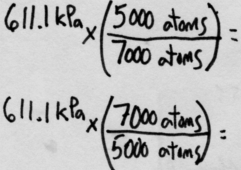 611.1 kPa × (5000 atoms / 7000 atoms) =
611.1 kPa × (7000 atoms / 5000 atoms) =